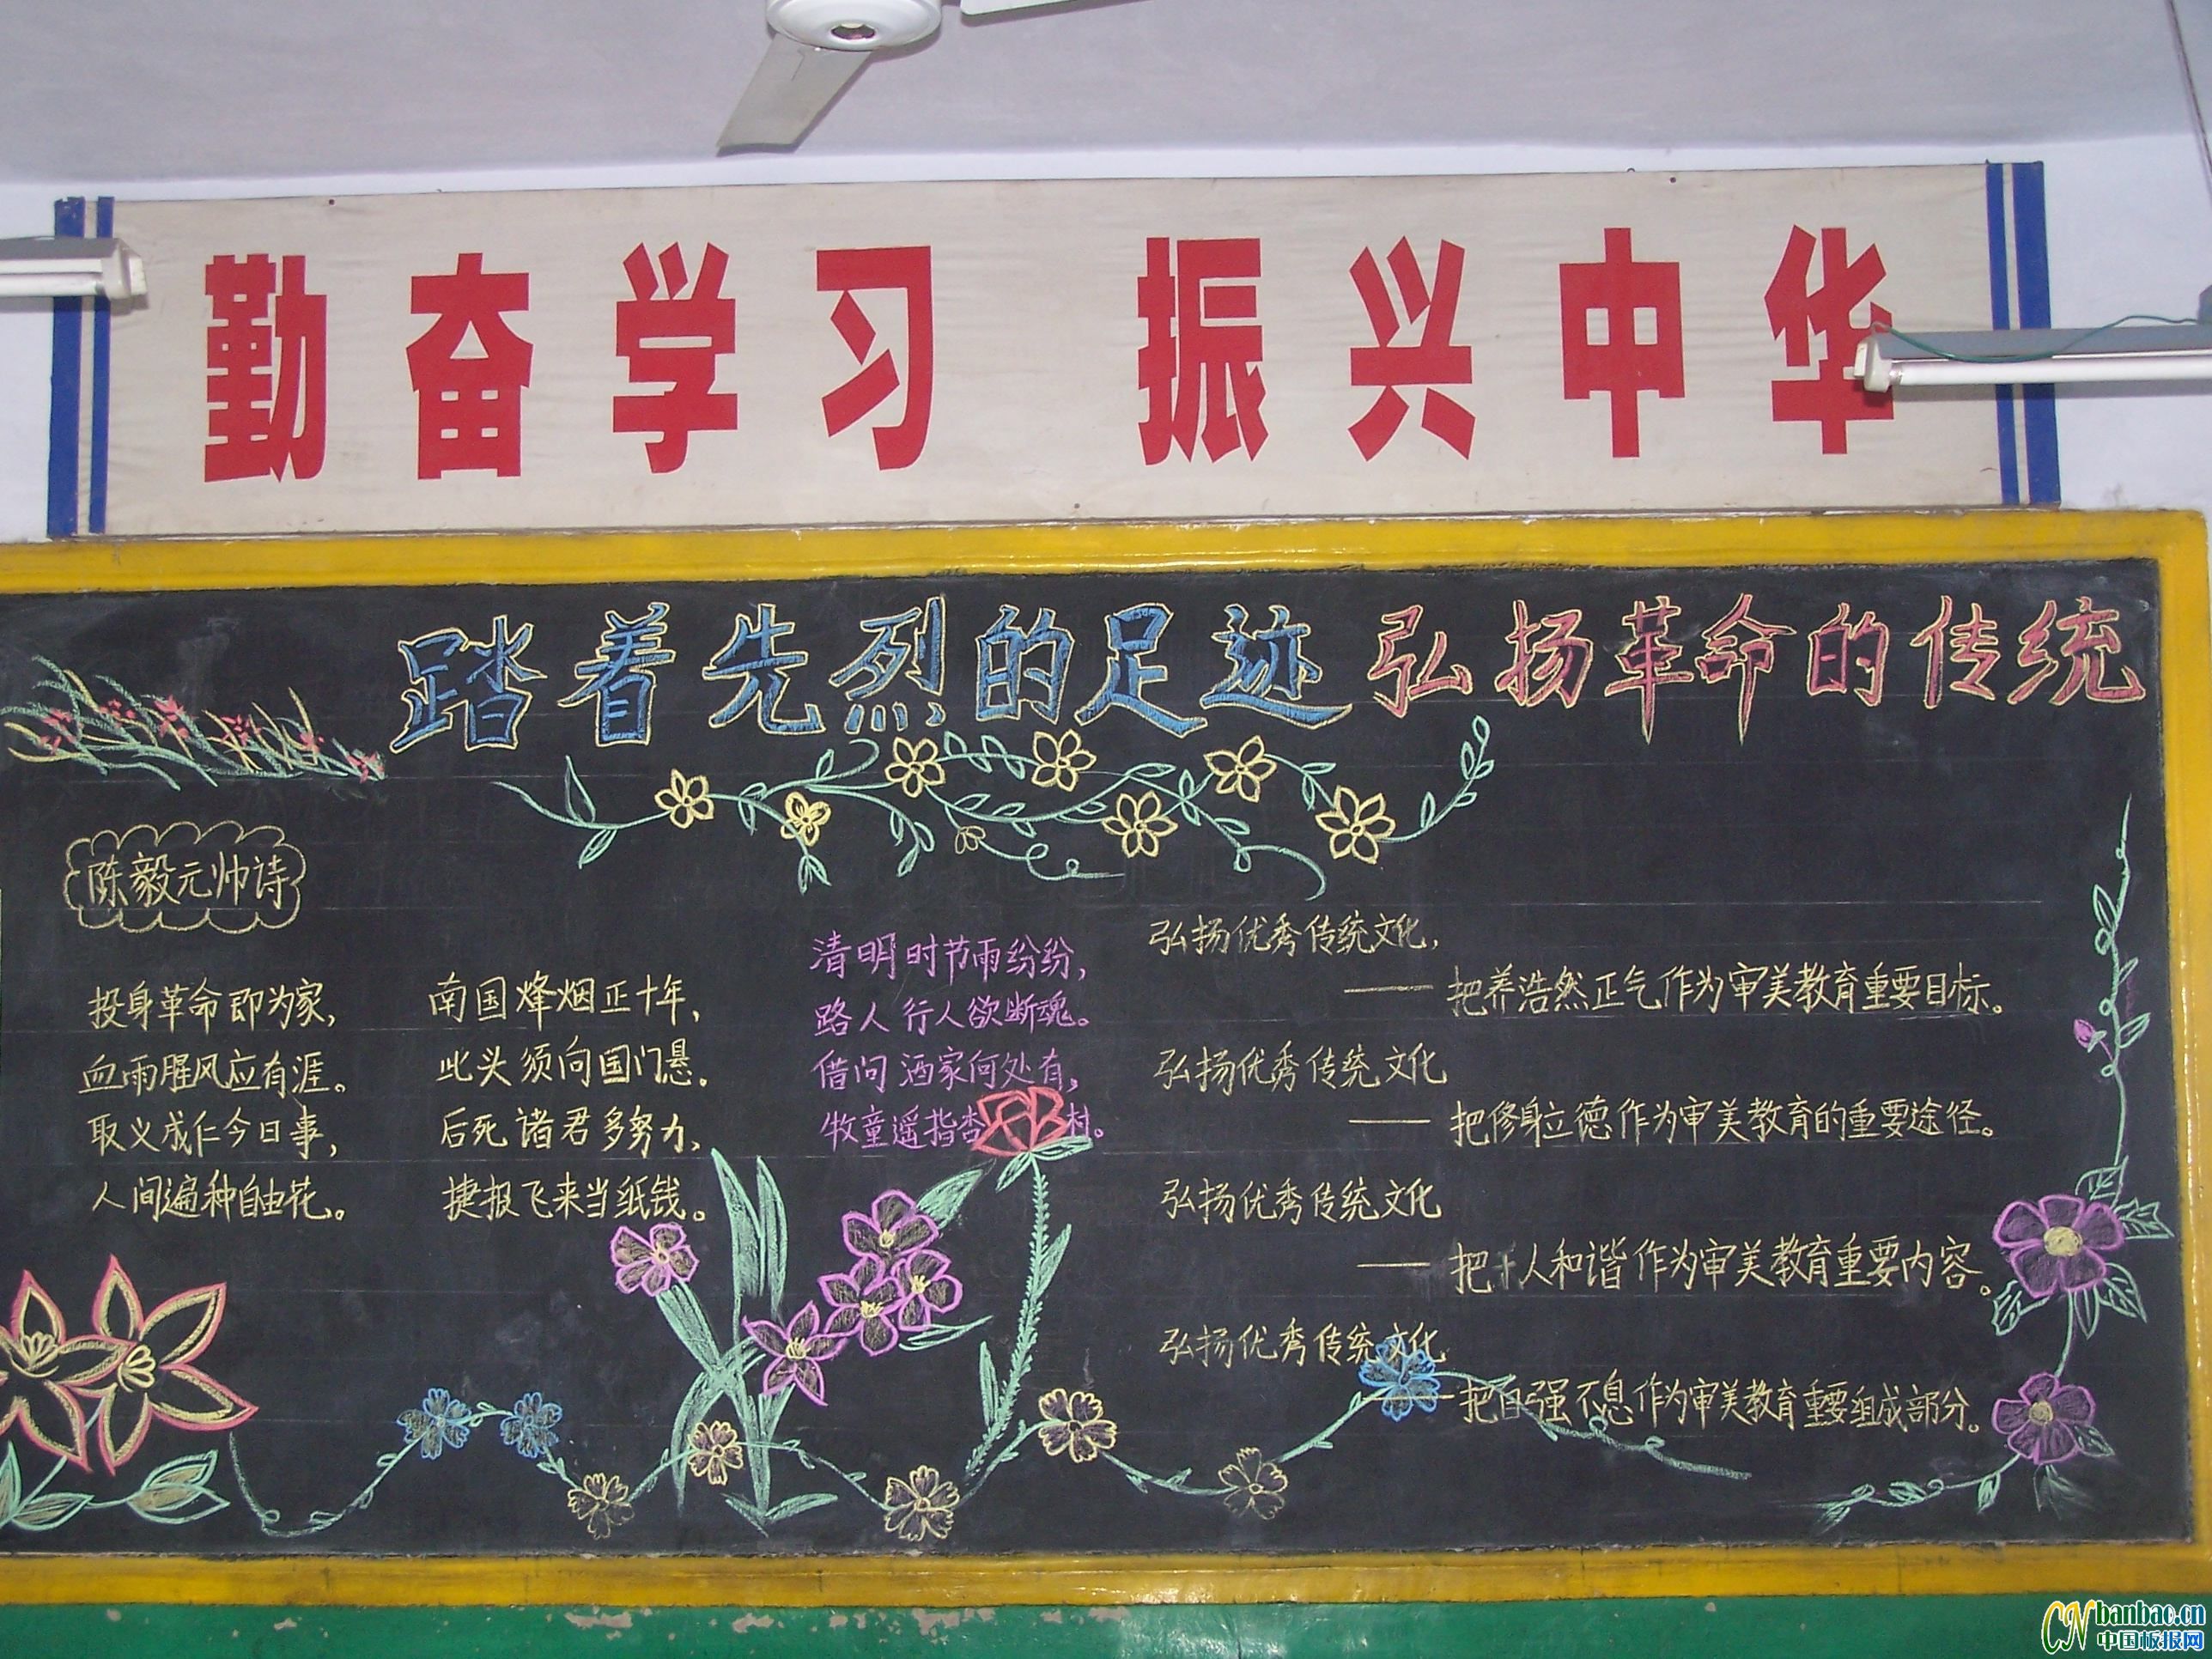 勤奋学习 振兴中华
踏着先烈的足迹 弘扬革命的传统
陈毅元帅诗
投身革命即为家,
血雨腥风应有涯。
取义成仁今日事,
人间遍种自由花。
南国烽烟正十年,
此头须向国门悬。
后死诸君多努力,
捷报飞来当纸钱。
清明时节雨纷纷,
路人行人欲断魂。
借问酒家何处有,
牧童遥指杏 村。
弘扬优秀传统文化,
——把养浩然正气作为审美教育重要目标。
弘扬优秀传统文化
——把修身立德作为审美教育的重要途径。
弘扬优秀传统文化
——把 人和谐作为审美教育重要内容。
弘扬优秀传统文化
——把自强不息作为审美教育重要组成部分。
CN banbao.cn
中国板报网